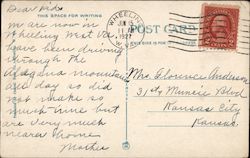 Dear kids
THIS SPACE FOR WRITING
We are now in
Wheeling West Va
have been driving
through the
mountains
all day so did
not make so
much time but
are very much
nearer home
Mother
WHEELING
11
1927
W.
POST CARD
THIS SIDE IS FOR ADDRESS
Mrs. Florence Anderson
Muncie Blvd
Kansas City
Kansas.